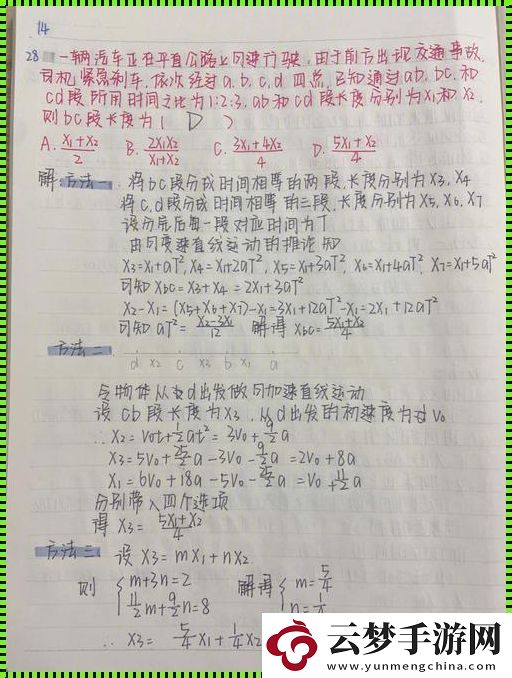 14
28 一辆汽车正在平直公路上匀速行驶,由于前方出现交通事故,
司机紧急刹车,依次经过a.b.c.d四点,已知通过ab,bc,和
cd段所用时间之比为1:2:3,ab和cd段长度分别为x₁和x₂,
则bc段长度为( D )
A. (x₁+x₂)/2 B. 2x₁x₂/(x₁+x₂) C. (3x₁+4x₂)/4 D. (5x₁+x₂)/4
解:方法一. 将bc段分成时间相等的两段,长度分别为x3, x4
将c,d段分成时间相等的三段,长度分别为x5, x6, x7
设分完后每一段对应时间为T
由匀变速直线运动的推论知
x3=x₁+aT², x4=x₁+2aT², x5=x₁+3aT², x6=x₁+4aT², x7=x₁+5aT²
可知 xbc=x3+x4=2x₁+3aT²
x2-x₁=(x5+x6+x7)-x₁=3x₁+12aT²-x₁=2x₁+12aT²
可知 aT²=(x2-3x₁)/12 解得 xbc=(5x₁+x2)/4
方法二
d x2 c x3 b x₁ a
令物体从d出发做匀加速直线运动
设cb段长度为x3,从d出发的初速度为v₀
∴ x2=v₀t+½at²=3v₀+9/2a
x3=5v₀+25/2a-3v₀-9/2a=2v₀+8a
x₁=6v₀+18a-5v₀-25/2a=v₀+11/2a
分别带入四个选项
得 x3=(5x₁+x2)/4
方法三 设 x3=mx₁+nx2
则 { m+3n=2 解得 { m=5/4
11/2m+9/2n=8 n=1/
∴ x3= 5/4x₁+1/4x2
云梦手游网
www.yunmengchina.com